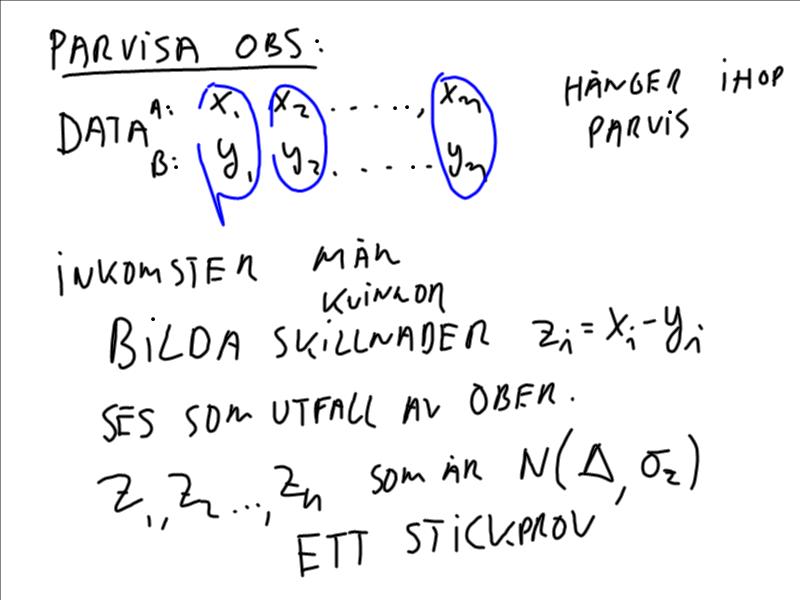 PARVISA OBS:
DATA A: x1 x2 ....., xn
B: y1 y2 ..... yn
HÄNGER IHOP
PARVIS
INKOMSTER MÄN
KVINNOR
BILDA SKILLNADER zi = xi - yi
SES SOM UTFALL AV OBER.
Z1, Z2 ..., Zn SOM ÄR N(Δ, σz)
ETT STICKPROV